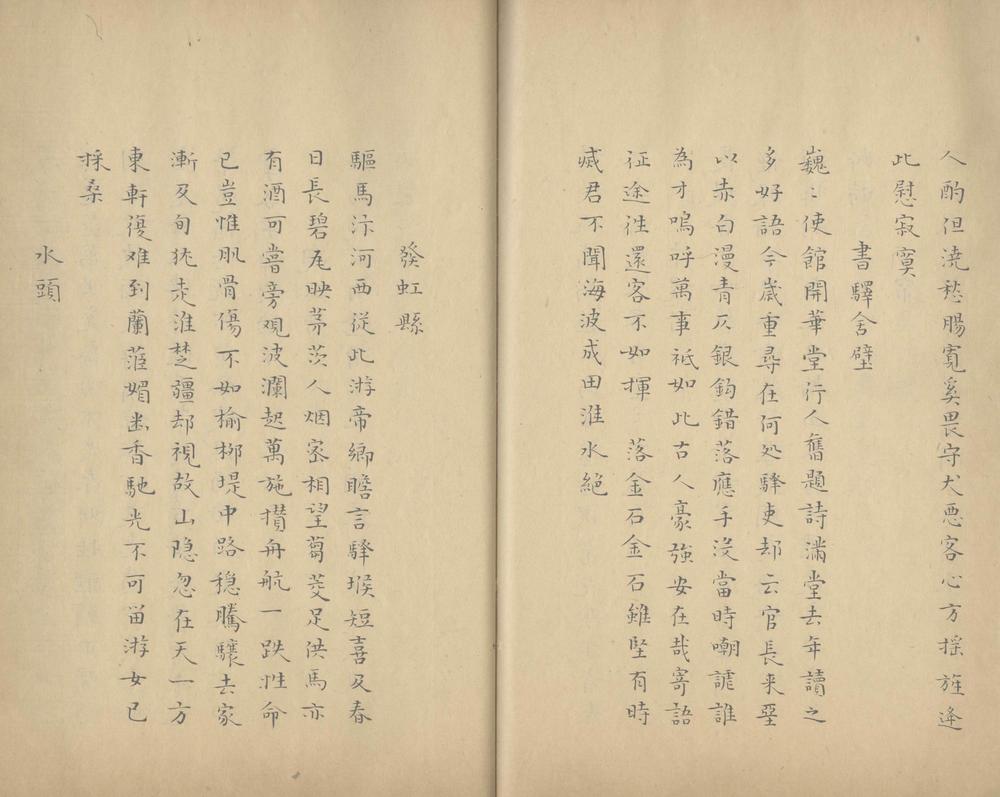 人酌但澆愁腸寬奚畏守犬惡客心方摇旌逢
此慰寂寞
書驛舍壁
巍〻使館開華堂行人舊題詩滿堂去年讀之
多好語今歲重尋在何処驛吏却云官長来堊
以赤白漫青灰銀鈎錯落應手沒當時嘲謔誰
為才嗚呼萬事祗如此古人豪強安在哉寄語
征途徃還客不如揮 落金石金石雖堅有時
烕君不聞海波成田淮水絕
發虹縣
驅馬汴河西從此游帝鄉瞻言驛堠短喜及春
日長碧尾映茅茨人烟宻相望蒭茭足供馬亦
有酒可嘗旁观波瀾起萬施攢舟航一跌性命
已豈惟肌骨傷不如榆柳堤中路穏騰驤去家
漸及旬犹走淮楚疆却視故山隐忽在天一方
東軒復难到蘭茝媚幽香馳光不可畄游女已
採桑
水頭